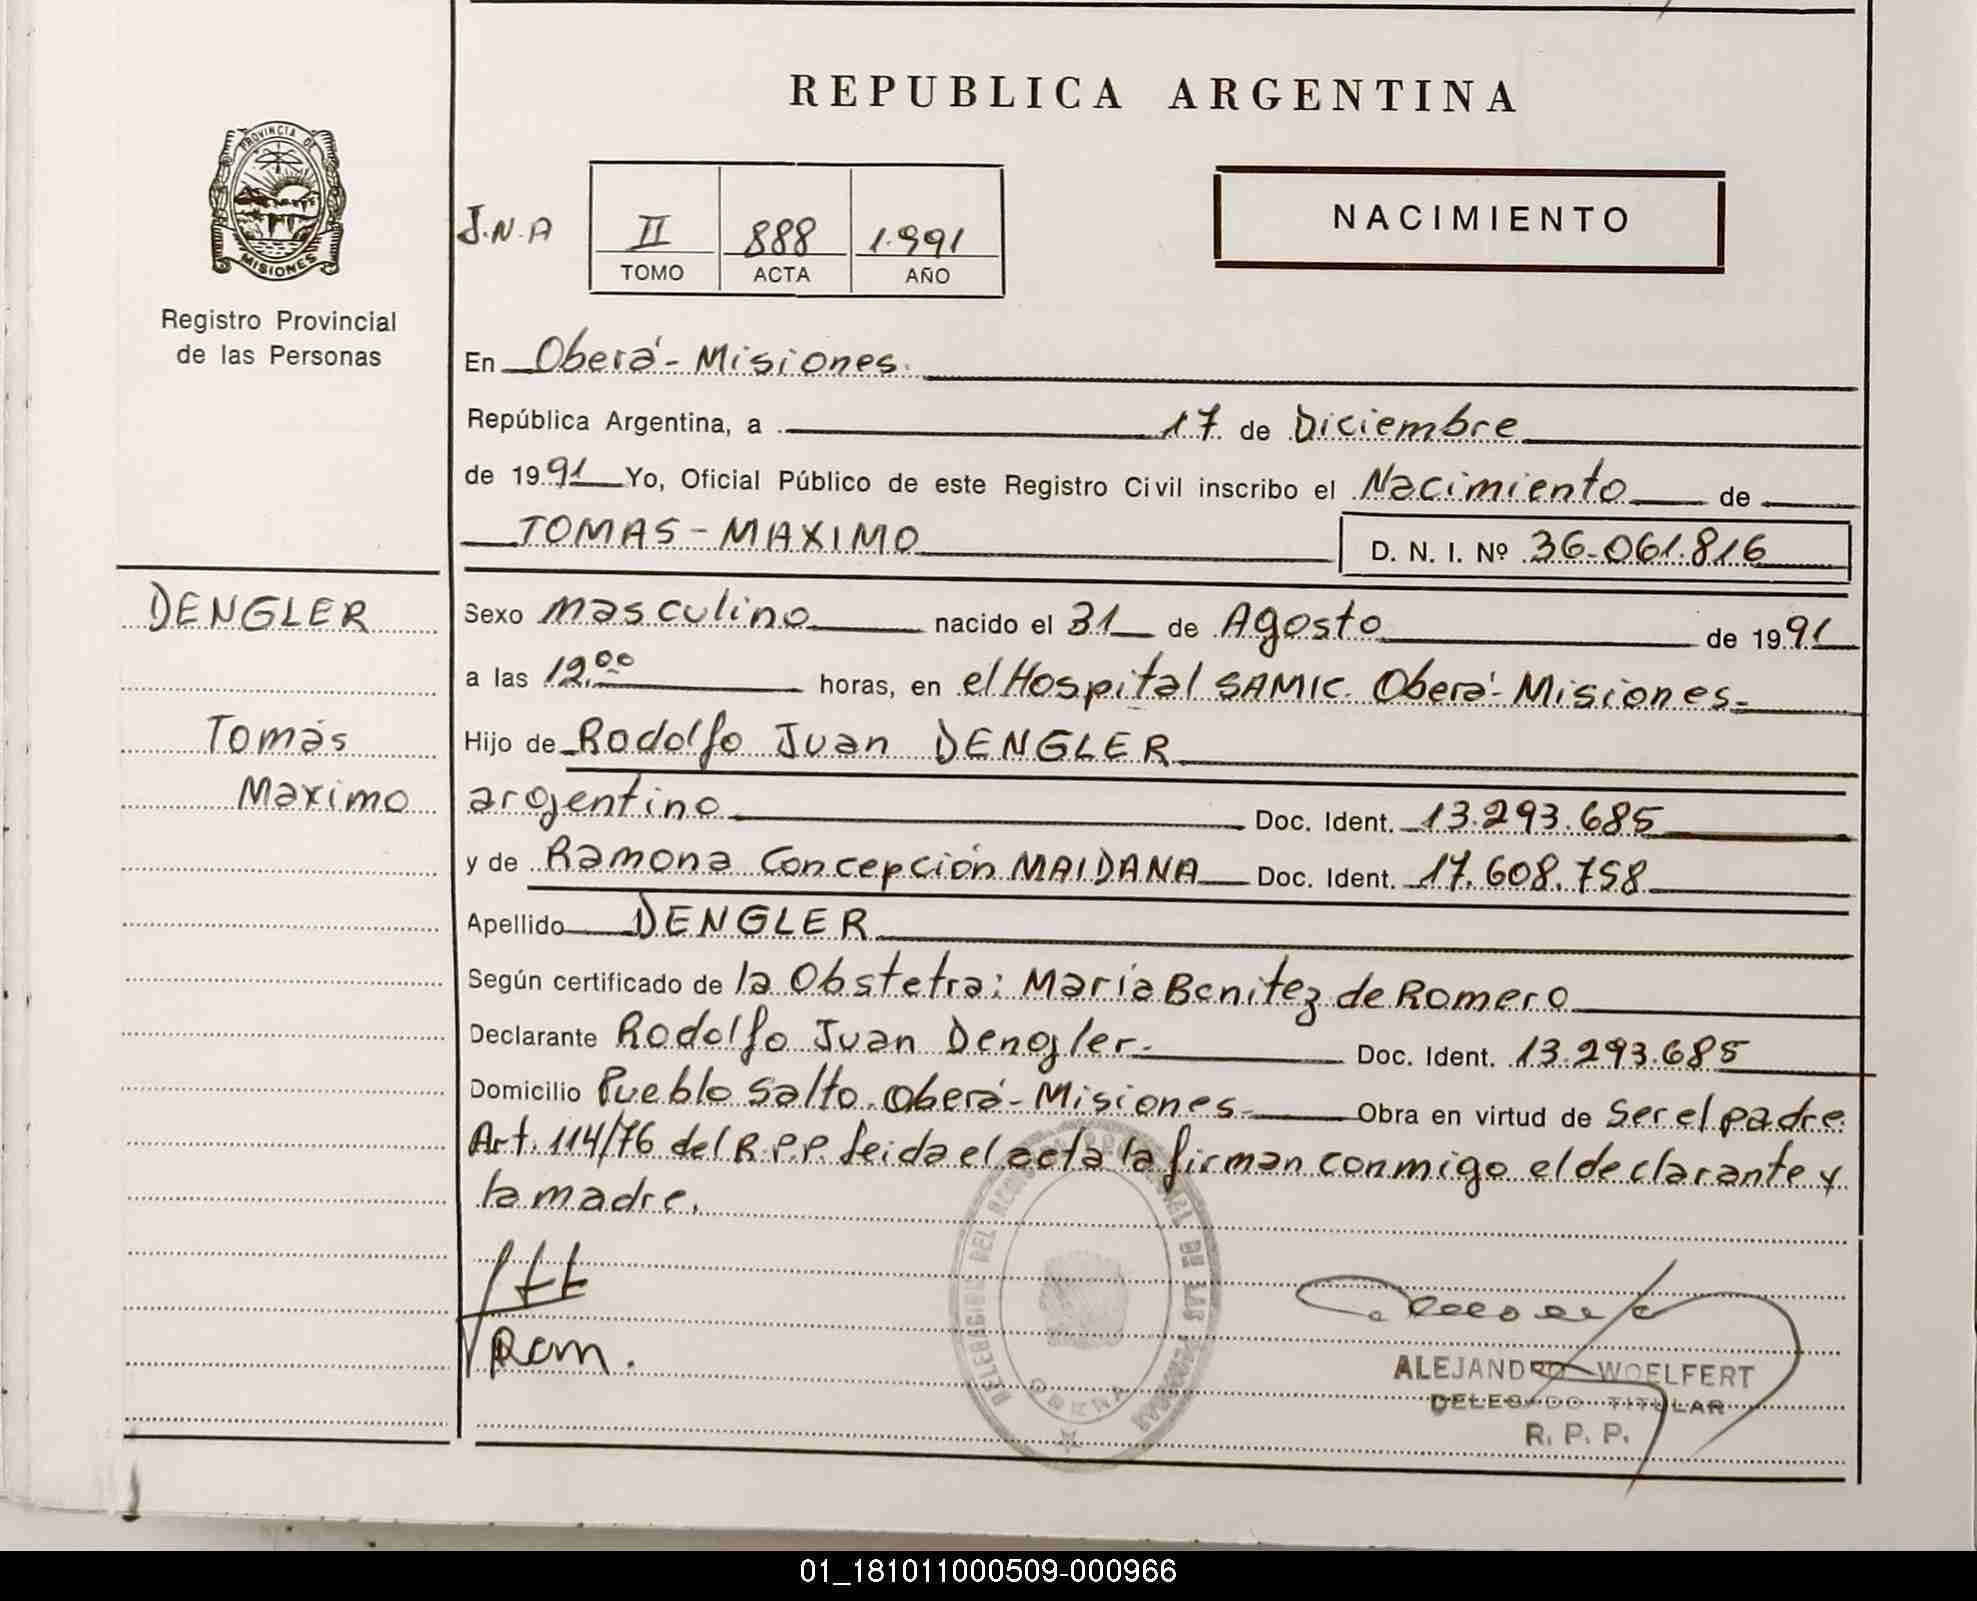 REPUBLICA ARGENTINA
PROVINCIA DE
MISIONES
Registro Provincial
de las Personas
J.N.A
II 888 1.991
TOMO ACTA AÑO
NACIMIENTO
En Oberá - Misiones.
República Argentina, a 17 de Diciembre
de 1991 Yo, Oficial Público de este Registro Civil inscribo el Nacimiento de
TOMAS - MAXIMO D. N. I. Nº 36.061.816
DENGLER
Tomás
Maximo
Sexo masculino nacido el 31 de Agosto de 1991
a las 12.00 horas, en el Hospital SAMIC. Oberá - Misiones.
Hijo de Rodolfo Juan DENGLER
argentino Doc. Ident. 13.293.685
y de Ramona Concepción MAIDANA Doc. Ident. 17.608.758
Apellido DENGLER
Según certificado de la Obstetra: María Benitez de Romero
Declarante Rodolfo Juan Dengler. Doc. Ident. 13.293.685
Domicilio Pueblo Salto. Oberá - Misiones Obra en virtud de ser el padre.
Art. 114/76 del R.P.P. leida el acta la firman conmigo el declarante y
la madre.
Rcm.
OBERA
ALEJANDRO WOELFERT
DELEGADO TITULAR
R. P. P.
01_181011000509-000966